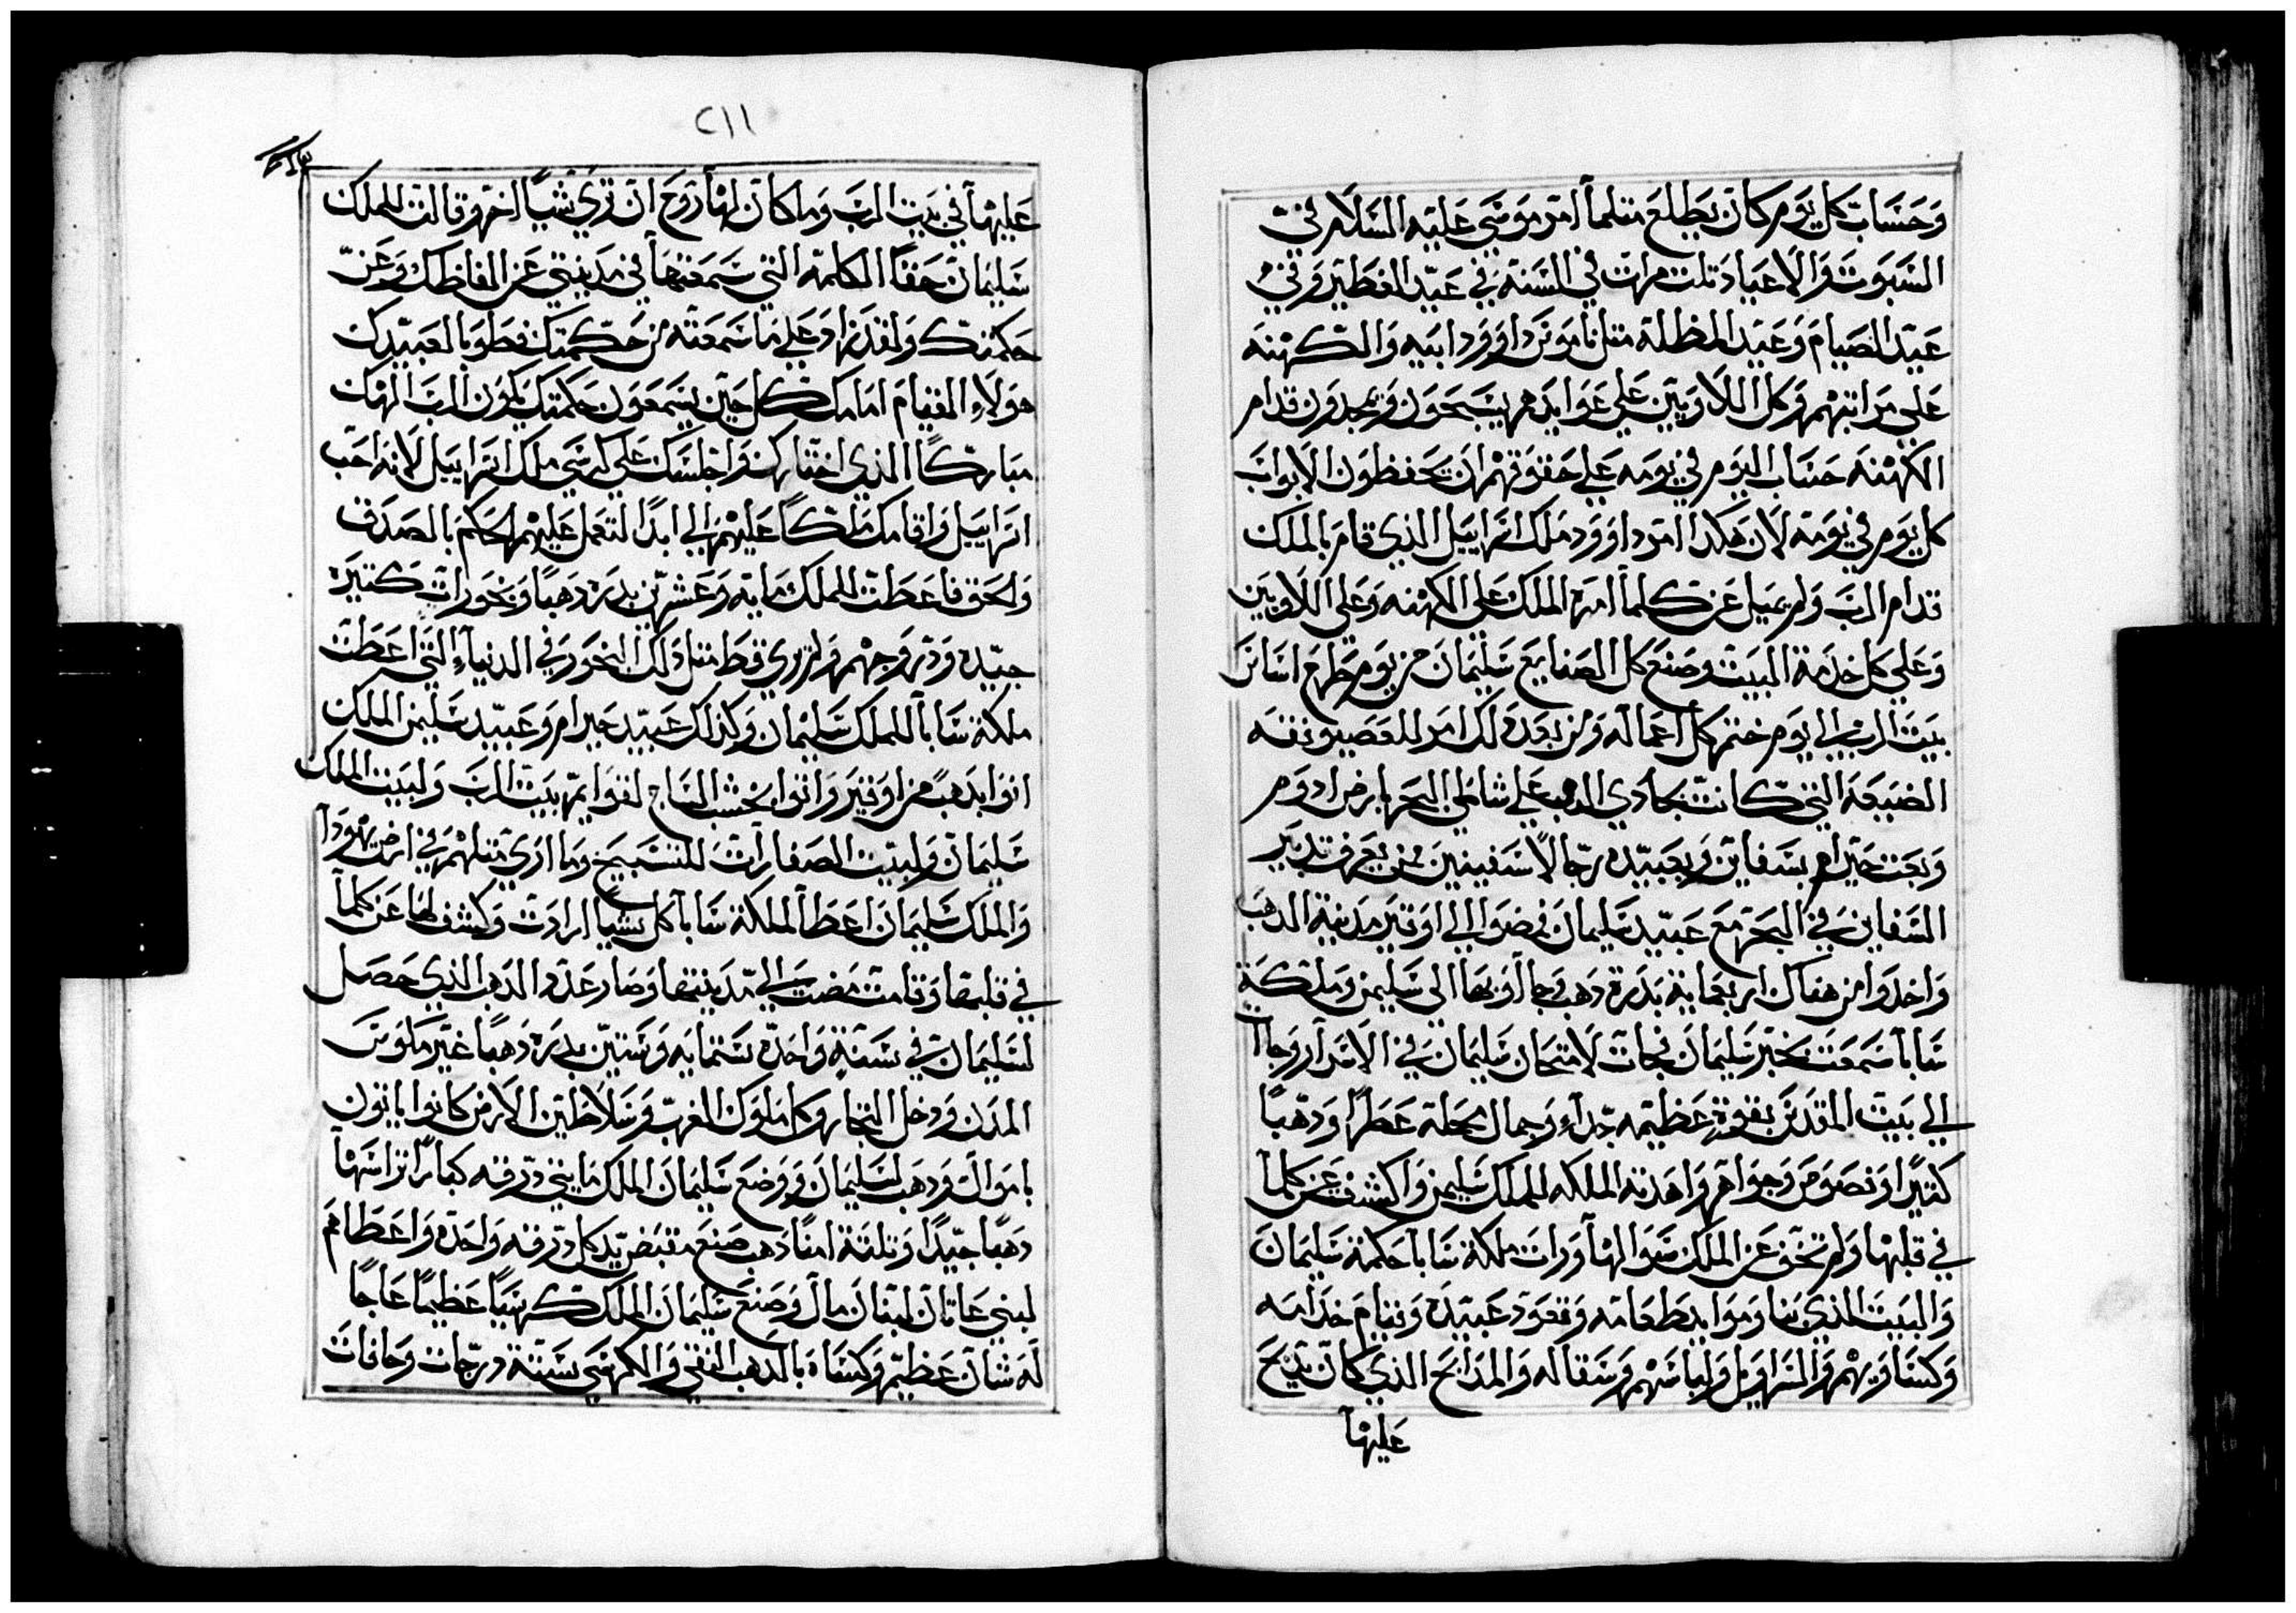 وحساب كل يوم كان يطلع متلما امر موسى عليه السلام في
السبوت والاعياد تلت مرات في السنة في عيد الفطير وفي
عيد الصيام وعيد المظلة متل ناموس داوود ابيه والكهنه
على مراتبهم وكل اللاويين علي عوايدهم يسبحون ويمجدون قدام
الكهنه حساب اليوم في يومه علي حقوقهم ان يحفظون الابواب
كل يوم في يومه لان هكدا امر داوود ملك اسراييل الذي قام بالملك
قدام الرب ولم يميل عن كلما امره الملك على الكهنه وعلى اللاويين
وعلي كل خدمة البيت وصنع كل الصنايع سليمان من يوم طرح اساس
بيت الرب الي يوم ختم كل اعماله ومن بعد دلك امر للعصيونقه
الضيعه التي كانت تحادي الدهب علي شاطي البحر بارض ادوم
وبعت حيرام بسفاين وبعبيده رجالا سفينين من يعرف تدبير
السفاين في البحر مع عبيد سليمان فمضوا الي اوقير مدينة الدهب
واخدوا من هناك اربعماية بدرة دهب وجآوبها الى سليمن وملكة
سابا سمعت بخبر سليمان فجات لامتحان سليمان في الاسرار وجاآ
الي بيت المقدس بقوة عظيمه جدآ وجمال محملة عطرا ودهبا
كتيرا وفصوص وجواهر واهدته الملكه للملك سليمن واكشفت عن كلما
في قلبها ولم تخف عن الملك سوالها ورات ملكة سابا حكمة سليمان
والبيت الذي بنا وموايد طعامه وقعود عبيده وقيام خدامه
وكساويهم والسراويل ولباسهم وسقاله والمدابح الذي كان يدبح
عليها
٢١١
عليها في بيت الرب وما كان لها روح ان تري شيا اخر وقالت للملك
سليمان حقا الكلمه التي سمعتها في مدينتي عن الفاظك وعن
حكمتك ولقد زاد علي ما سمعته من حكمتك فطوبا لعبيدك
هولاء القيام امامك كل حين يسمعون حكمتك يكون الرب الهك
مباركا الذي اختارك واجلسك علي كرسي ملك اسراييل لانه احب
اسراييل واقامك ملكا عليهم الي ابدا لتعمل عليهم الحكم بالصدق
والحق فاعطت للملك مايه وعشرين بدره دهبا وبخورات كتيره
جيده ودر وجهم ولم روي قط متل دلك البخور في الدنيا التي اعطت
ملكة سابا للملك سليمان وكدلك عبيد حيرام وعبيد سليمن الملك
اتوا بدهب من اوقير واتوا بخشب الساج لقوايم بيت الرب ولبيت الملك
سليمان ولبيت الصفارات للتسبيح وما اري متلهم في ارض يهودا
والملك سليمان اعطا لملكة سابا كل شيا ارادت وكشف لها عن كلما
في قلبها وقامت مضت الي مدينتها وصار عدد الدهب الذي حصل
لسليمان في سنة واحده ستمايه وستين بدره دهبا غير مكوس
المدن ودخل التجار وكل ملوك الغرب وسلاطين الارض كانوا ياتون
باموال ودهب لسليمان ووضع سليمان الملك مايتي درقه كبار تراسها
دهبا جيدا وتلتة امنا دهب صنع مقبض يد كل درقه واحده واعطاهم
لبني عاتان لبنان مال وصنع سليمان الملك كرسيا عظيما عاجا
له شان عظيم وكساه بالدهب النقي والكرسي بستة درجات وحافات